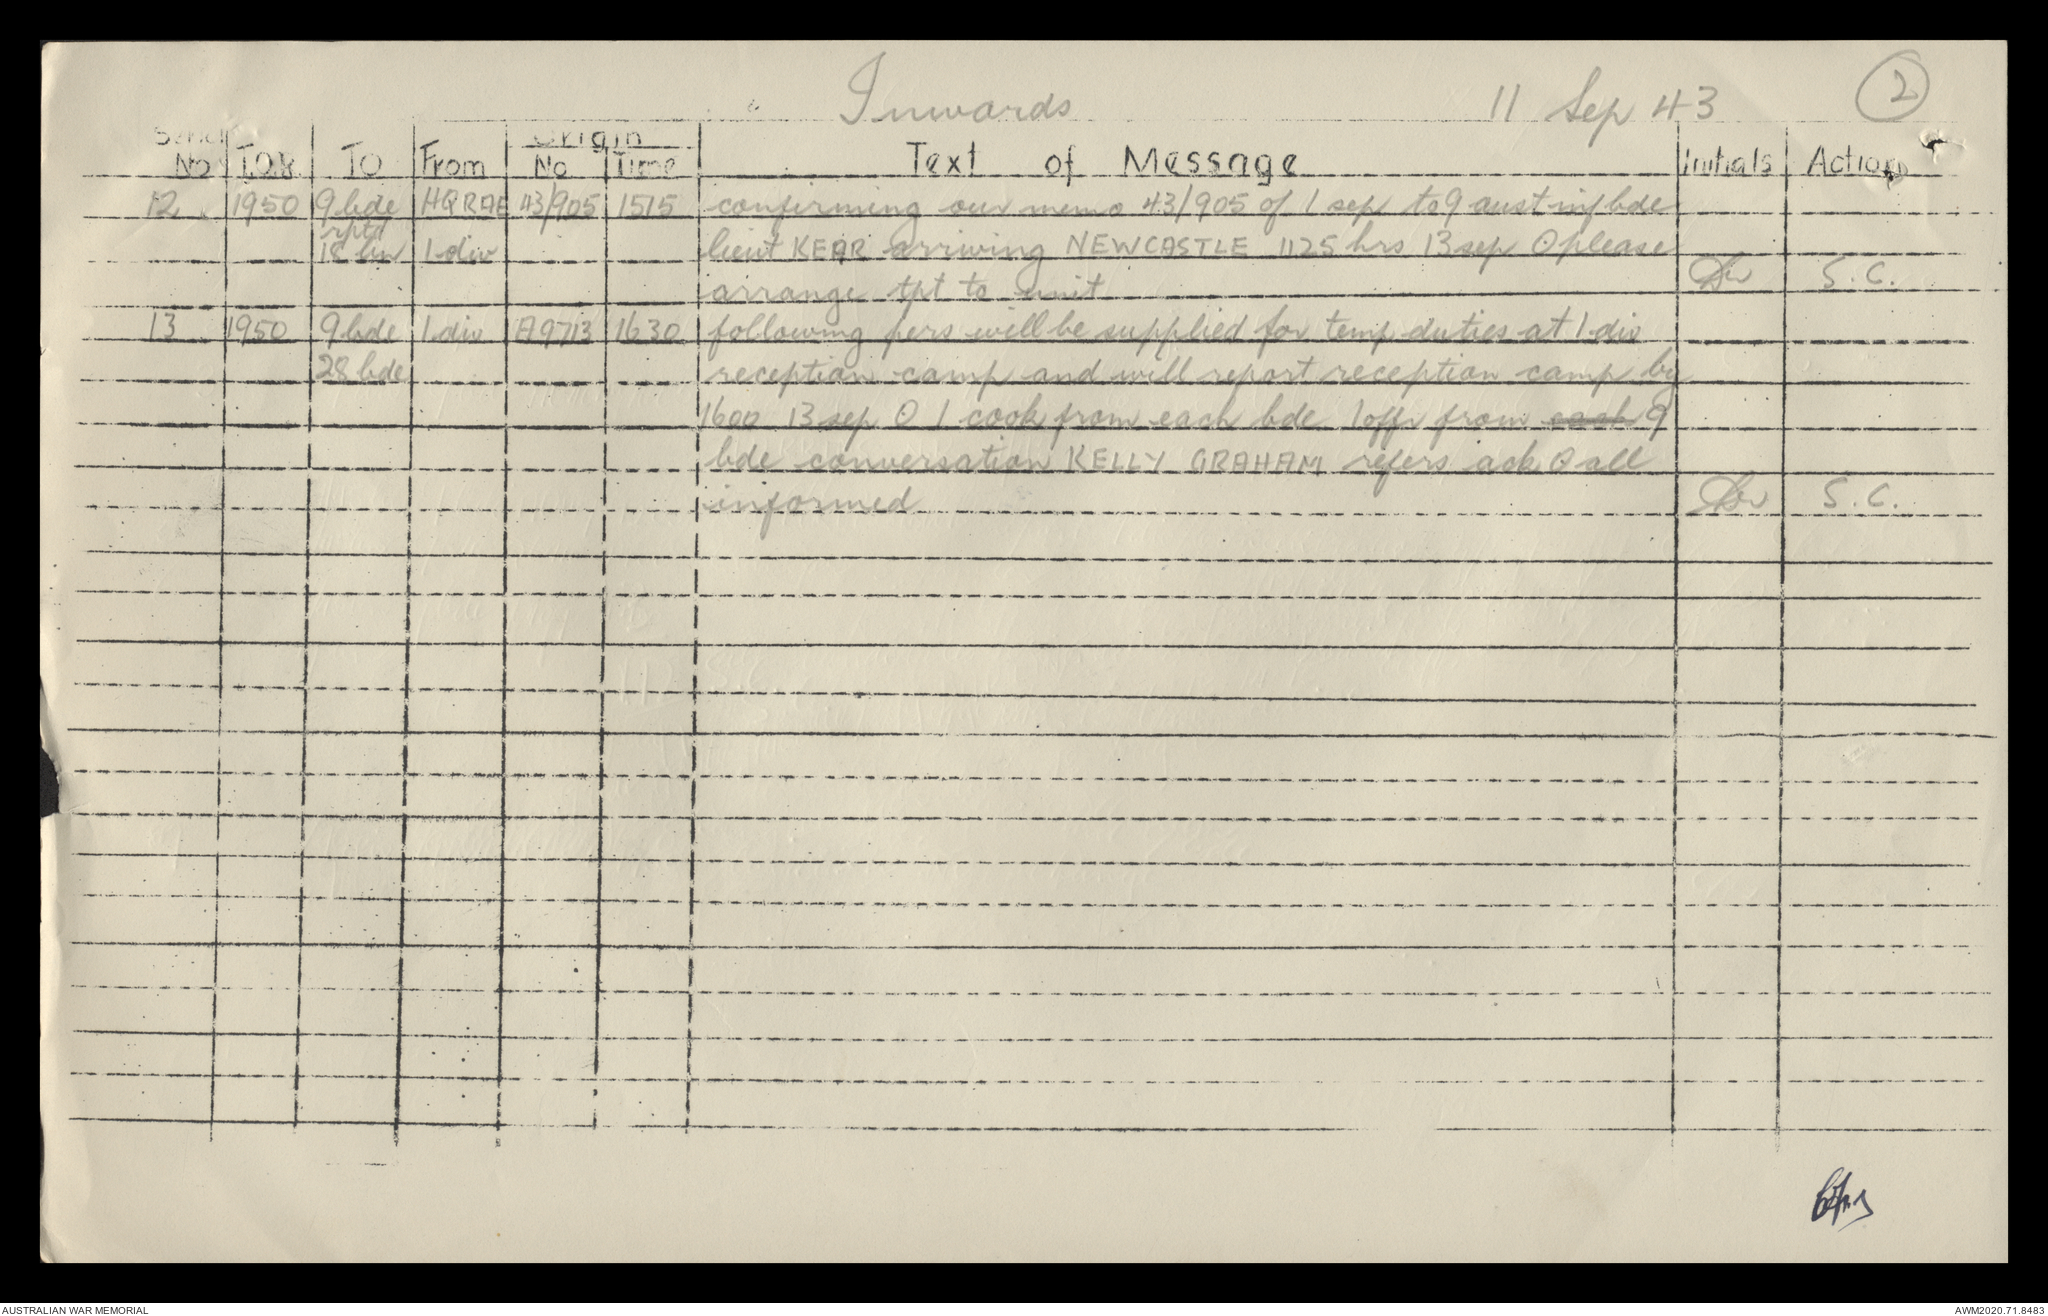 Inwards 11 Sep 43 2
Serial Origin
No TOR TO From No Time Text of Message Initials Action
12 1950 9 bde HQ RAE 43/905 1515 confirming our memo 43/905 of 1 sep to 9 aust inf bde
rptd
18 bn 1 div lieut KEAR arriving NEWCASTLE 1125 hrs 13 sep O please
arrange tpt to unit S.C.
13 1950 9 bde 1 div A9713 1630 following pers will be supplied for temp duties at 1 div
28 bde reception camp and will report reception camp by
1600 13 sep O 1 cook from each bde 1 offr from each 9
bde conversation KELLY GRAHAM refers ack O all
informed S.C.
AUSTRALIAN WAR MEMORIAL AWM2020.71.8483